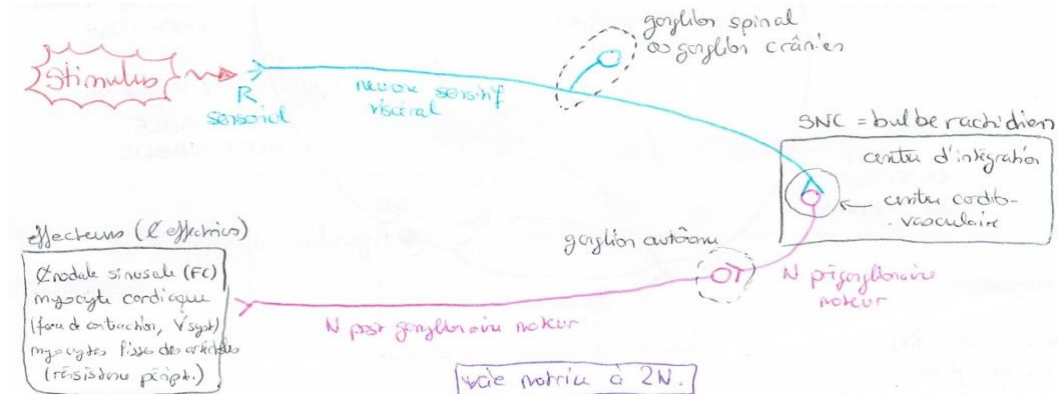 ganglion spinal
ou ganglion crânien
Stimulus
R
sensoriel
neurone sensitif
viscéral
SNC = bulbe rachidien
centre d'intégration
centre cardio-
vasculaire
ganglion autonome
N préganglionnaire
moteur
N post ganglionnaire moteur
effecteurs (¢ effectrices)
¢ nodale sinusale (FC)
myocyte cardiaque
(force de contraction, V syst)
myocytes lisses des artérioles
(résistance périph.)
voie motrice à 2N.